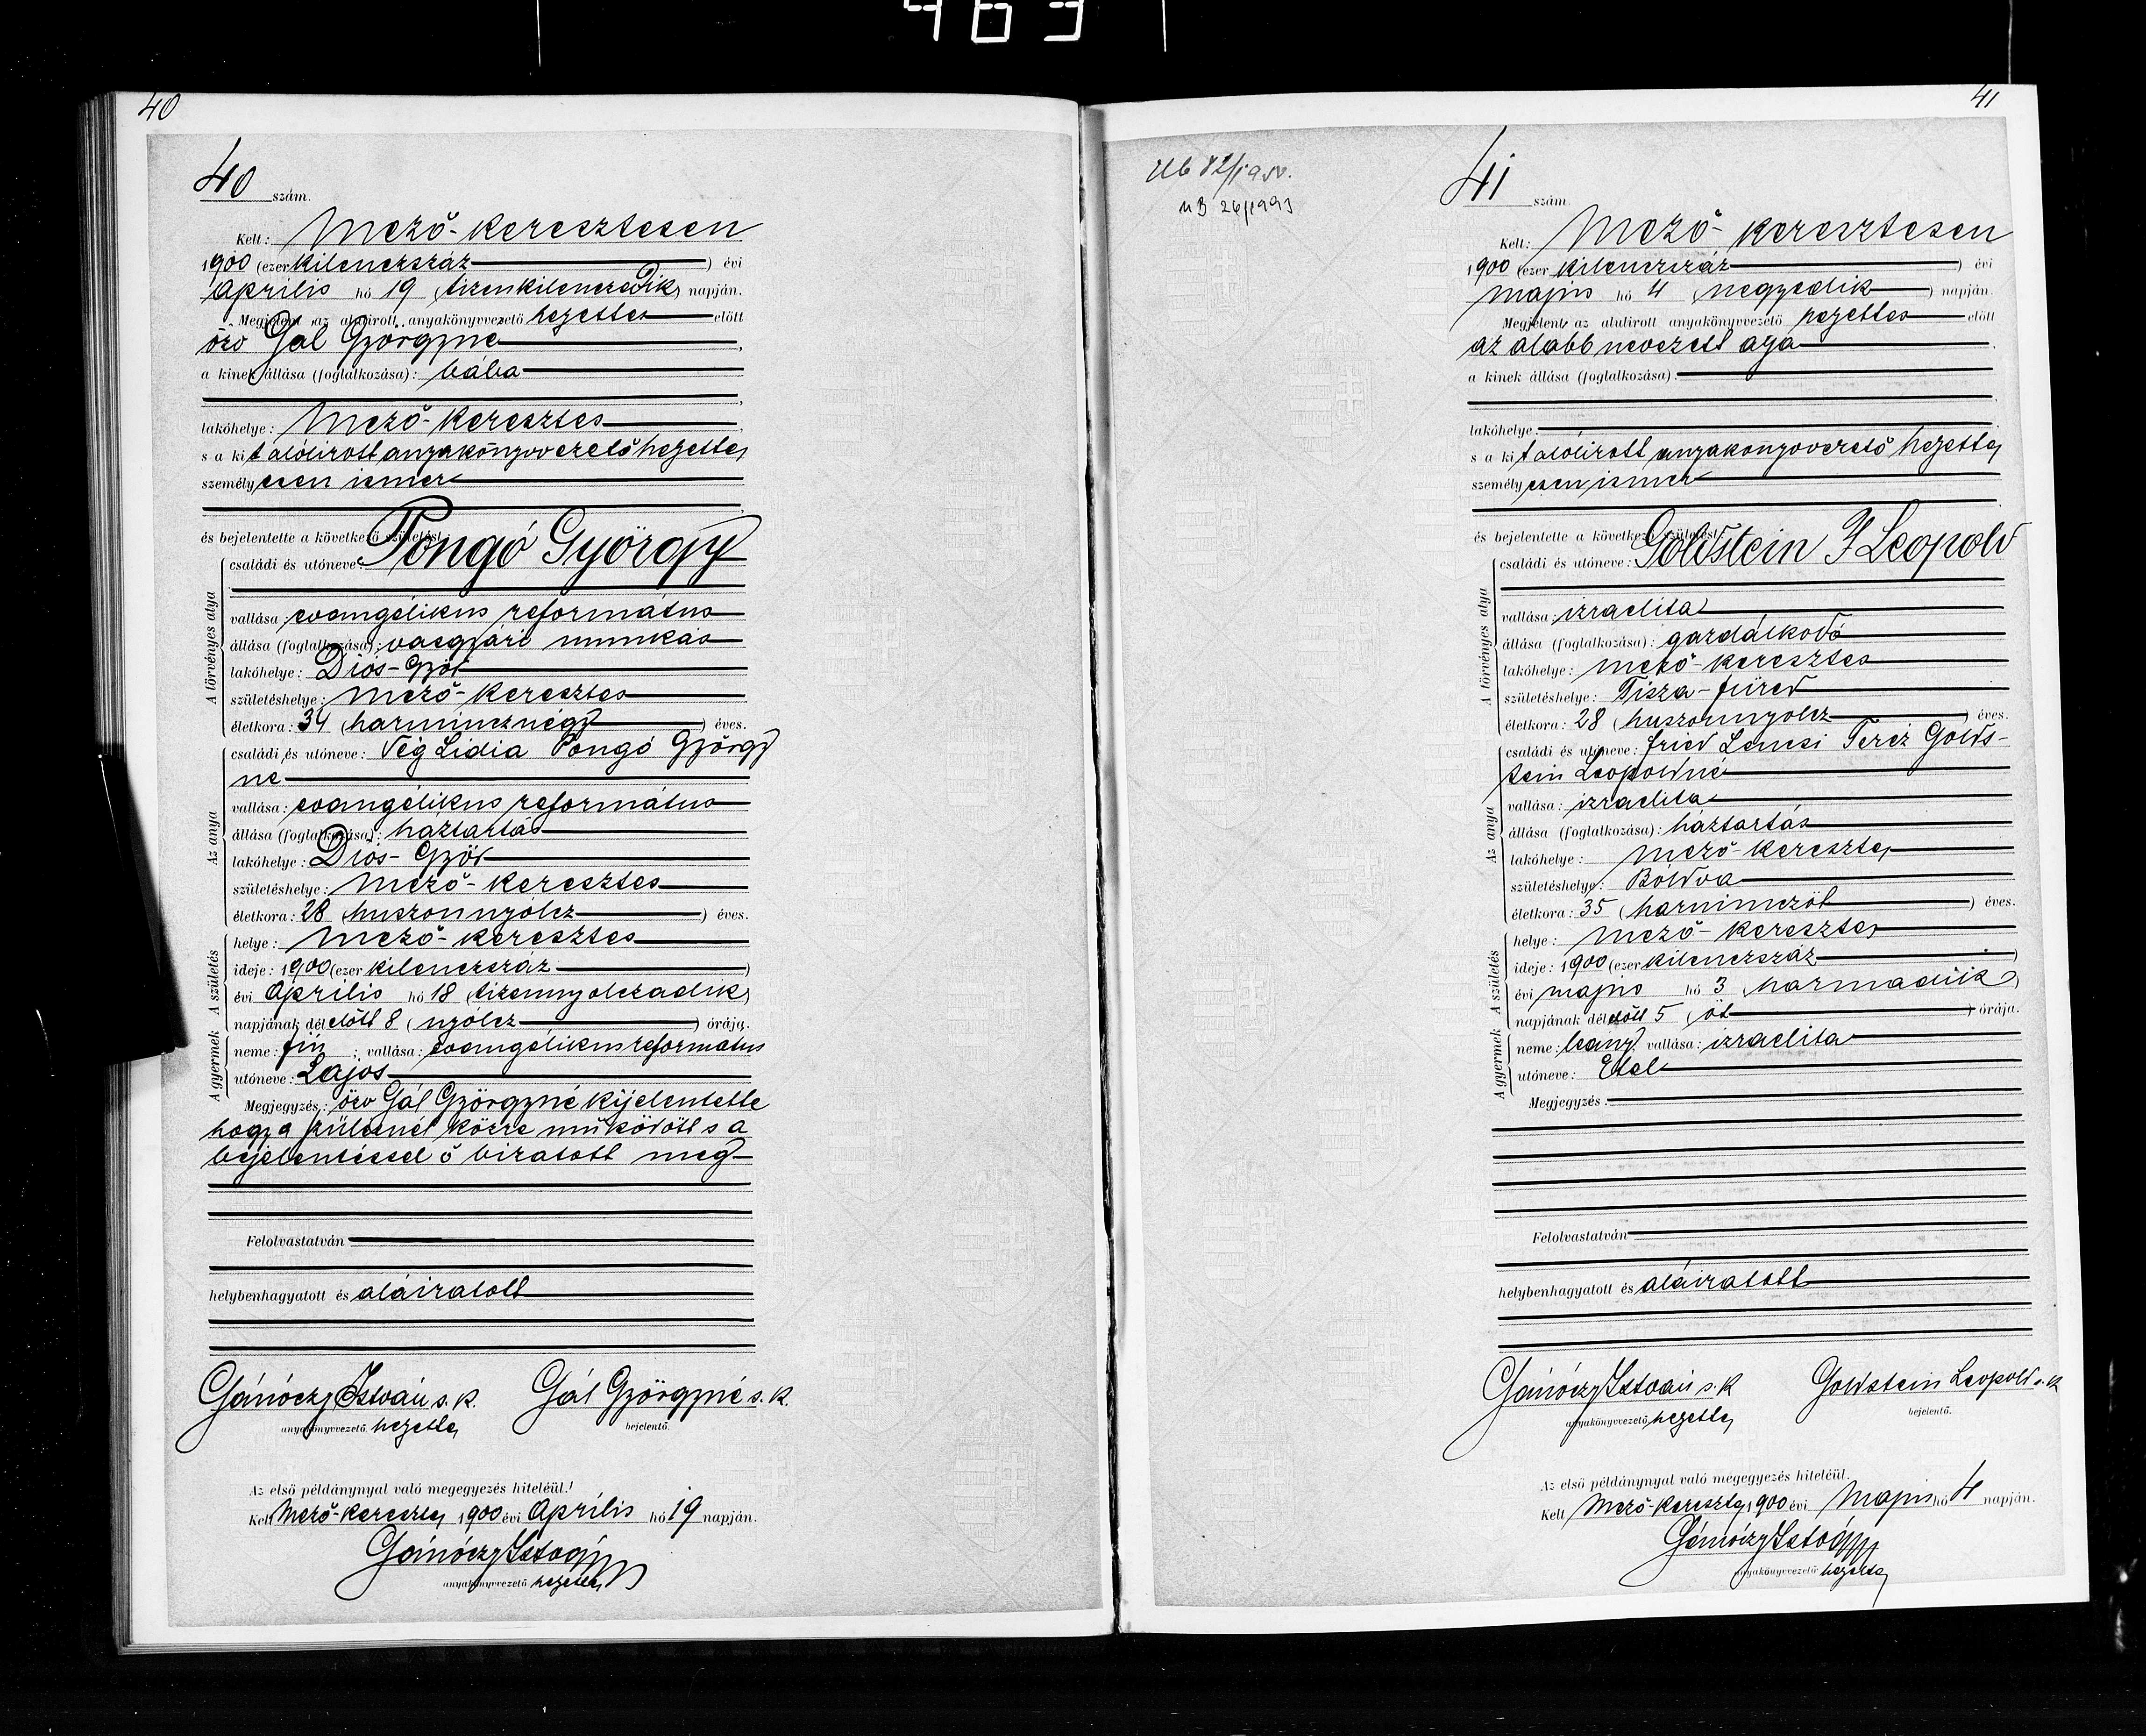 463
40
40 szám.
Kelt: Mező-keresztesen
1900 (ezer kilenczszáz) évi
április hó 19 (tizenkilenczedik) napján.
Megjelent az alulirott anyakönyvvezető helyettes előtt
özv Gál Györgyné,
a kinek állása (foglalkozása): bába
lakóhelye: Mező-keresztes,
s a kit alólirott anyakönyvvezető helyettes
személyesen ismer
és bejelentette a következő születést:
A törvényes atya
családi és utóneve: Pongó György
vallása: evangélikus református
állása (foglalkozása): vasgyári munkás
lakóhelye: Diós-Győr
születéshelye: Mező-keresztes
életkora: 34 (harmincznégy) éves.
Az anya
családi és utóneve: Vég Lidia Pongó György
né
vallása: evangélikus református
állása (foglalkozása): háztartás
lakóhelye: Diós-Győr
születéshelye: Mező-keresztes
életkora: 28 (huszonnyolcz) éves.
A születés
helye: Mező-keresztes
ideje: 1900 (ezer kilenczszáz)
évi április hó 18 (tizennyolczadik)
napjának délelőtt 8 (nyolcz) órája.
A gyermek
neme: fiu; vallása: evangélikus református
utóneve: Lajos
Megjegyzés: özv Gál Györgyné kijelentette
hogy a szülésnél közre működött s a
bejelentéssel ő bizatott meg
Felolvastatván
helybenhagyatott és aláiratott
Gánóczy István s. k. Gál Györgyné s. k.
anyakönyvvezető helyettes bejelentő.
Az első példánynyal való megegyezés hiteléül!
Kelt Mező-keresztes 1900 évi április hó 19 napján.
Gánóczy István
anyakönyvvezető helyettes
41
41 szám.
Kelt: Mező-keresztesen
1900 (ezer kilenczszáz) évi
május hó 4 (negyedik) napján.
Megjelent az alulirott anyakönyvvezető helyettes előtt
az alább nevezett atya,
a kinek állása (foglalkozása):
lakóhelye:
s a kit alólirott anyakönyvvezető helyettes
személyesen ismer
és bejelentette a következő születést:
A törvényes atya
családi és utóneve: Goldstein I Leopold
vallása: izraelita
állása (foglalkozása): gazdálkodó
lakóhelye: Mező-keresztes
születéshelye: Tisza-füred
életkora: 28 (huszonnyolcz) éves.
Az anya
családi és utóneve: Fried Lencsi Teréz Golds-
tein Leopoldné
vallása: izraelita
állása (foglalkozása): háztartás
lakóhelye: Mező-keresztes
születéshelye: Boldva
életkora: 35 (harminczöt) éves.
A születés
helye: Mező-keresztes
ideje: 1900 (ezer kilenczszáz)
évi május hó 3 (harmadik)
napjának délelőtt 5 (öt) órája.
A gyermek
neme: leány; vallása: izraelita
utóneve: Etel
Megjegyzés:
Felolvastatván
helybenhagyatott és aláiratott
Gánóczy István s. k. Goldstein Leopold s. k
anyakönyvvezető helyettes bejelentő.
Az első példánynyal való megegyezés hiteléül.
Kelt Mező-keresztes 1900 évi május hó 4 napján.
Gánóczy István
anyakönyvvezető helyettes